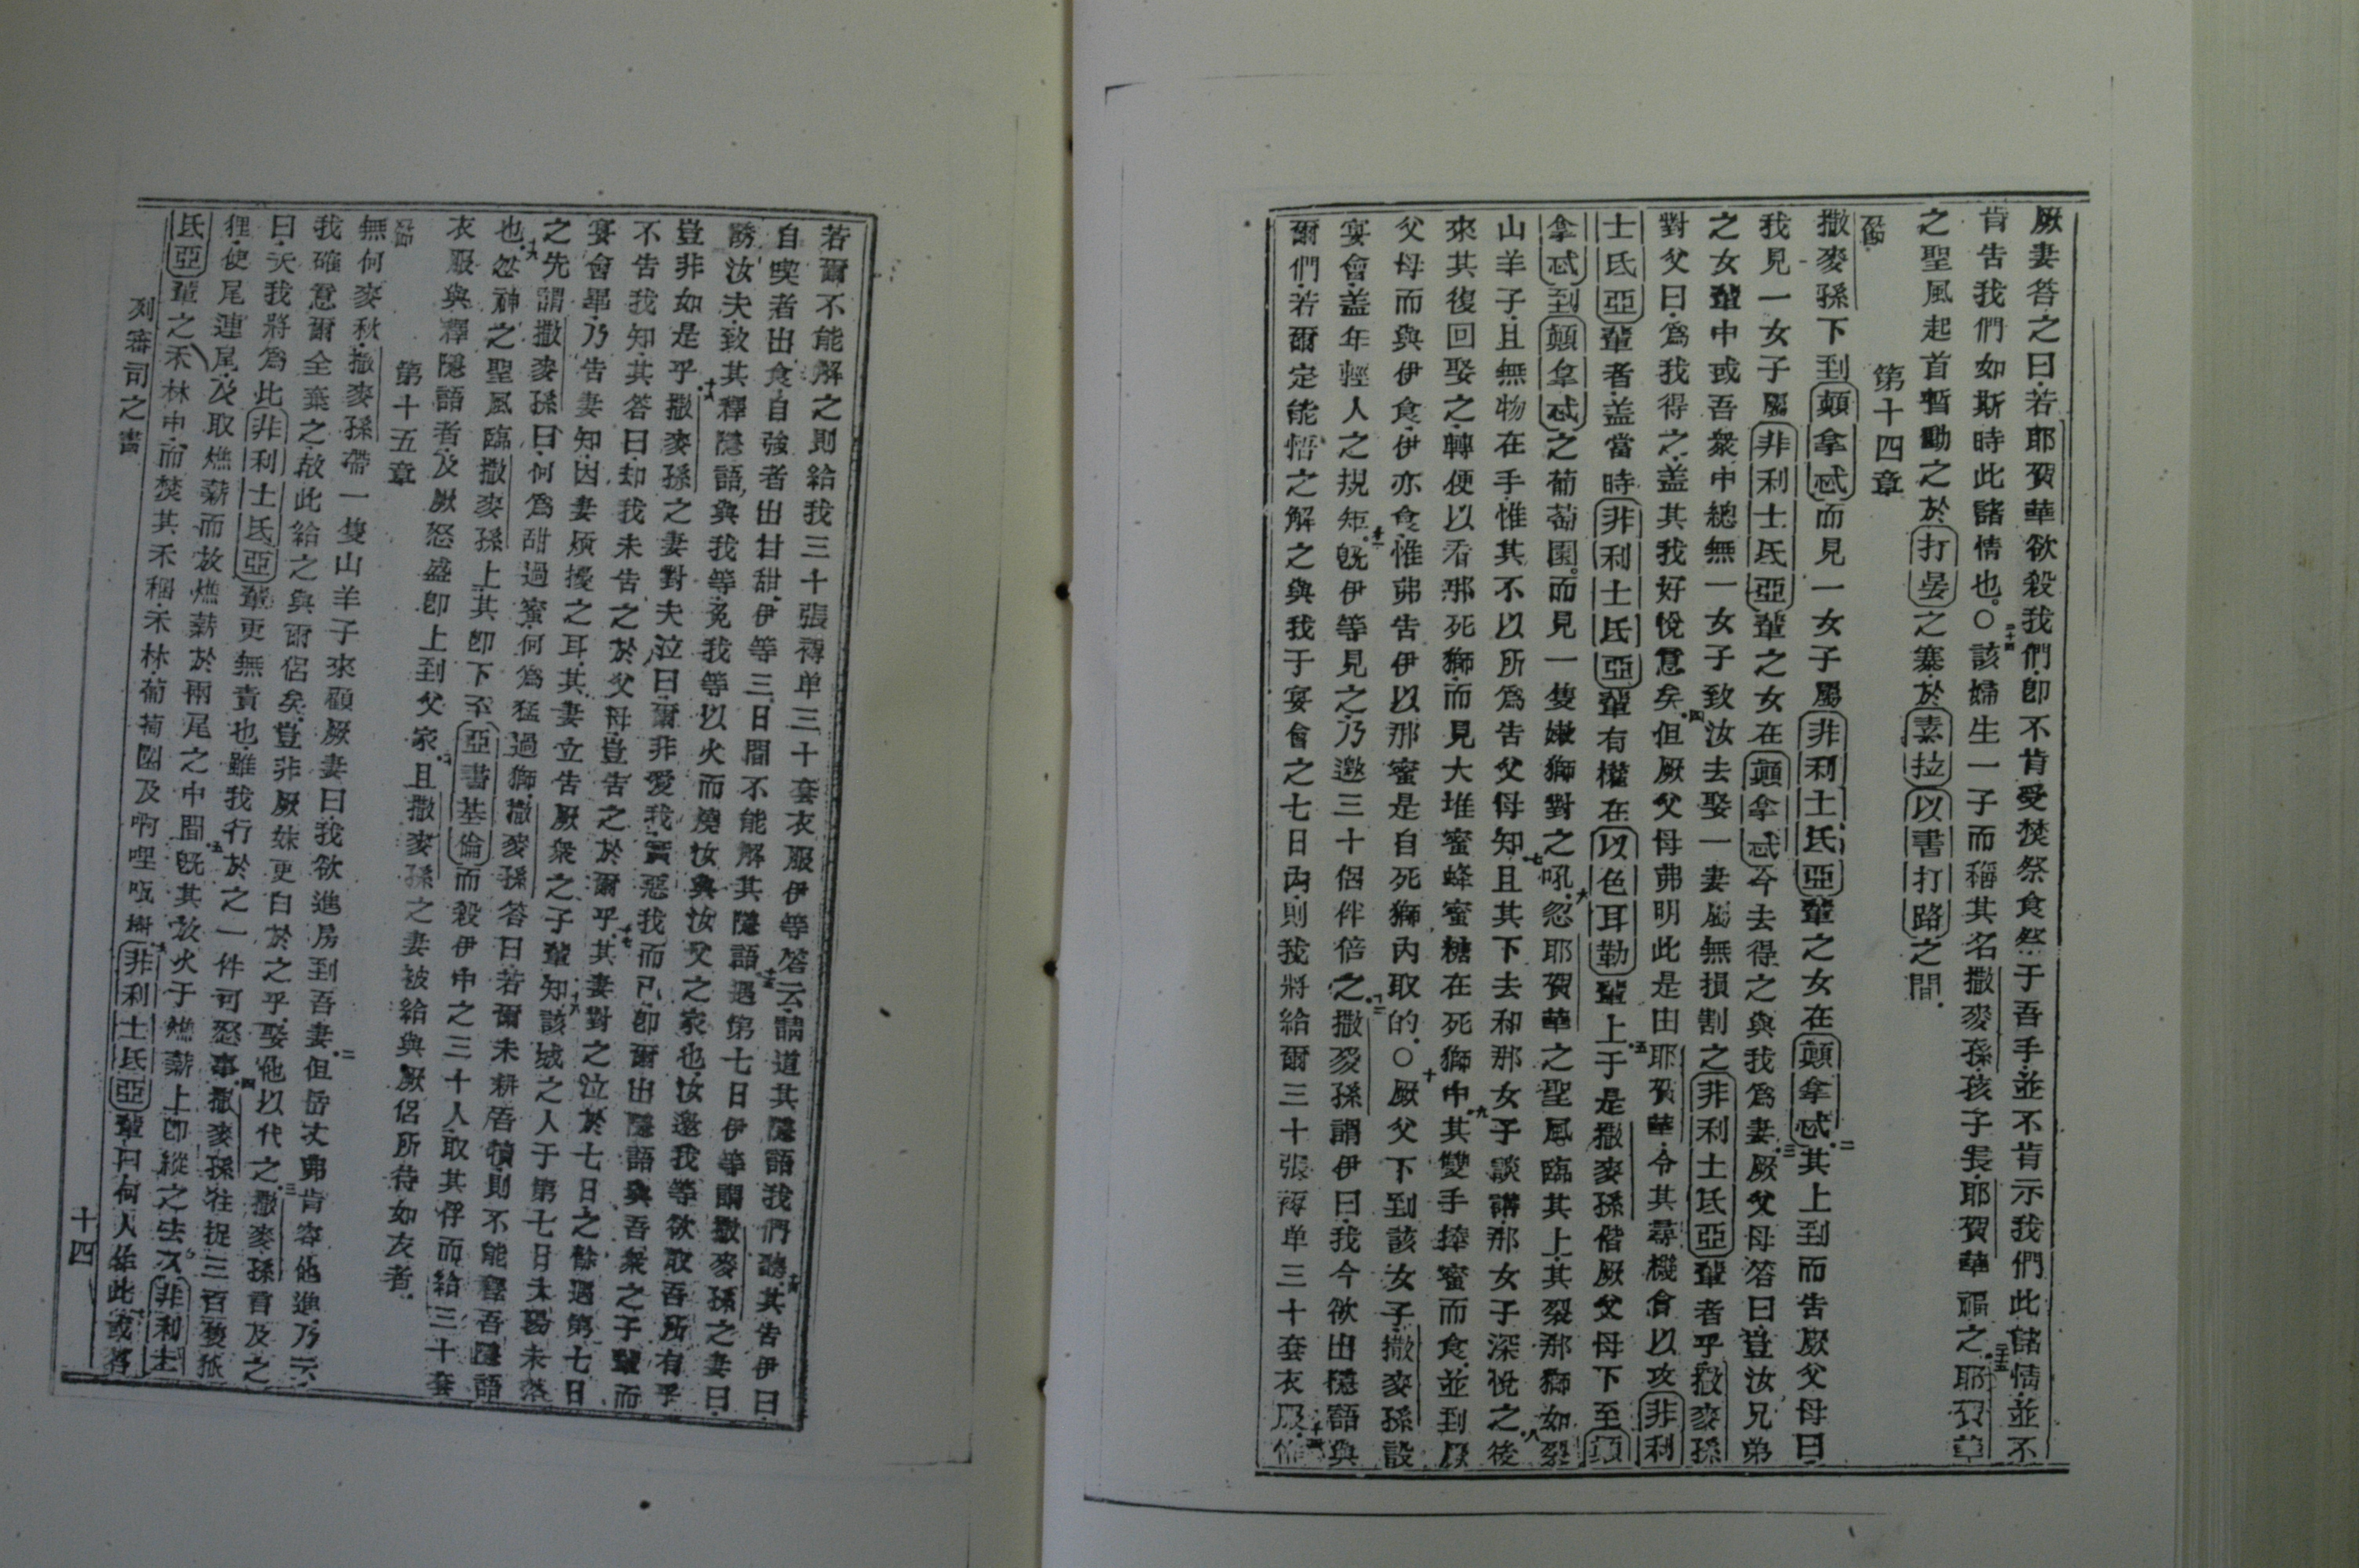 厥妻答之曰若耶賀華欲殺我們即不肯受焚祭食祭于吾手並不肯示我們此諸情並不
肯告我們如斯時此諸情也○二十四該婦生一子而稱其名撒麥孫孩子長耶賀華福之二十五耶賀華
之聖風起首暫動之於打晏之寨於素拉以書打路之間
第十四章
一節
撒麥孫下到顛拿忒而見一女子屬非利士氏亞輩之女在顛拿忒二其上到而告厥父母曰
我見一女子屬非利士氏亞輩之女在顛拿忒今去得之與我為妻三厥父母答曰豈汝兄弟
之女輩中或吾衆中總無一女子致汝去娶一妻屬無損割之非利士氏亞輩者乎撒麥孫
對父曰為我得之盖其我好悅意矣四但厥父母弗明此是由耶賀華令其尋機會以攻非利
士氏亞輩者盖當時非利士氏亞輩有權在以色耳勒輩上五于是撒麥孫偕厥父母下至顛
拿忒到顛拿忒之葡萄園而見一隻嫩獅對之吼六忽耶賀華之聖風臨其上其裂那獅如裂
山羊子且無物在手惟其不以所為告父母知七且其下去和那女子談講那女子深悅之八後
來其復回娶之轉便以看那死獅而見大堆蜜蜂蜜糖在死獅中九其雙手捧蜜而食並到厥
父母而與伊食伊亦食惟弗告伊以那蜜是自死獅內取的○十厥父下到該女子撒麥孫設
宴會盖年輕人之規矩十一既伊等見之乃邀三十侶伴倍之十二撒麥孫謂伊曰我今欲出隱語與
爾們若爾定能悟之解之與我于宴會之七日內則我將給爾三十張褥单三十套衣服十三惟
若爾不能解之則給我三十張褥单三十套衣服伊等答云請道其隱語我們聽十四其告伊曰
自喫者出食自強者出甘甜伊等三日間不能解其隱語十五遇第七日伊等謂撒麥孫之妻曰
誘汝夫致其釋隱語與我等免我等以火而燒汝與汝父之家也汝邀我等欲取吾所有乎
豈非如是乎十六撒麥孫之妻對夫泣曰爾非愛我實惡我而已即爾出隱語與吾衆之子輩而
不告我知其答曰却我未告之於父母豈告之於爾乎十七其妻對之泣於七日之餘遇第七日
宴會畢乃告妻知因妻煩擾之耳其妻立告厥衆之子輩知十八該城之人于第七日未暘未落
之先謂撒麥孫曰何為甜過蜜何為猛過獅撒麥孫答曰若爾未耕吾犢則不能釋吾隱語
也十九忽神之聖風臨撒麥孫上其即下至亞書基倫而殺伊中之三十人取其俘而給三十套
衣服與釋隱語者及厥怒盛即上到父家二十且撒麥孫之妻被給與厥侶所待如友者
第十五章
一節
無何麥秋撒麥孫帶一隻山羊子來顧厥妻曰我欲進房到吾妻但岳丈弗肯容他進二乃云
我確意爾全棄之故此給之與爾侶矣豈非厥妹更白於之乎娶他以代之三撒麥孫言及之
曰夫我將為此非利士氏亞輩更無責也雖我行於之一件可怒事四撒麥孫往捉三百隻狐
狸使尾連尾及取燋薪而放燋薪於兩尾之中間五既其放火于燋薪上即縱之去入非利士
氏亞輩之禾林中而焚其禾稇禾林葡萄園及啊哩㖠樹六非利士氏亞輩曰何人作此或答
列審司之書
十四